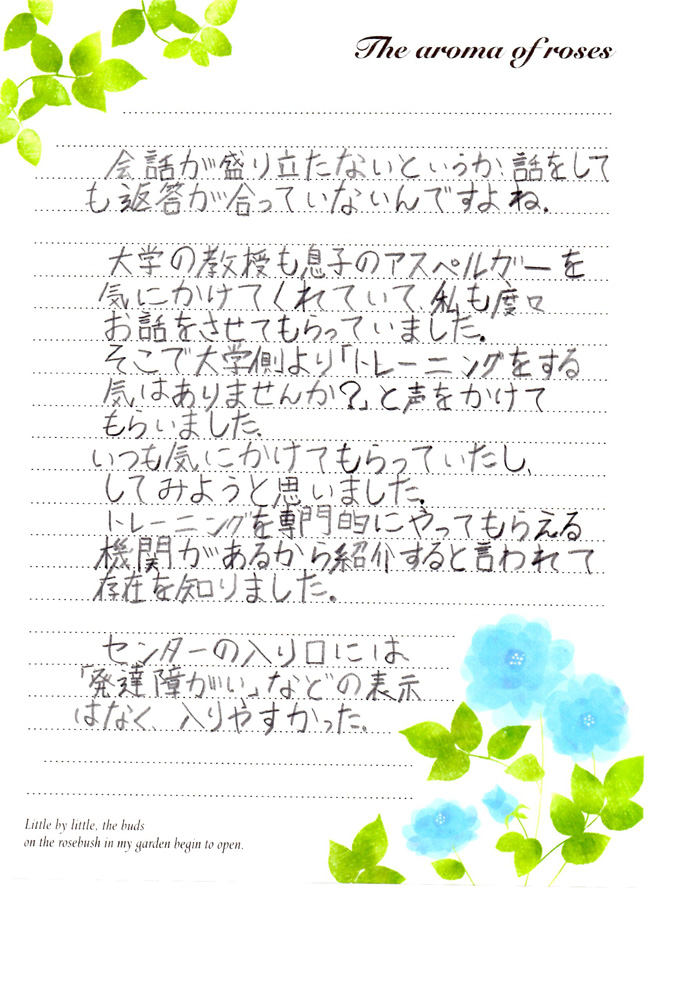 The aroma of roses
会話が盛り立たないというか、話をして
も返答が合っていないんですよね。
大学の教授も息子のアスペルガーを
気にかけてくれていて、私も度々
お話をさせてもらっていました。
そこで大学側より「トレーニングをする
気はありませんか?」と声をかけて
もらいました。
いつも気にかけてもらっていたし、
してみようと思いました。
トレーニングを専門的にやってもらえる
機関があるから紹介すると言われて
存在を知りました。
センターの入り口には
「発達障がい」などの表示
はなく、入りやすかった。
Little by little, the buds
on the rosebush in my garden begin to open.